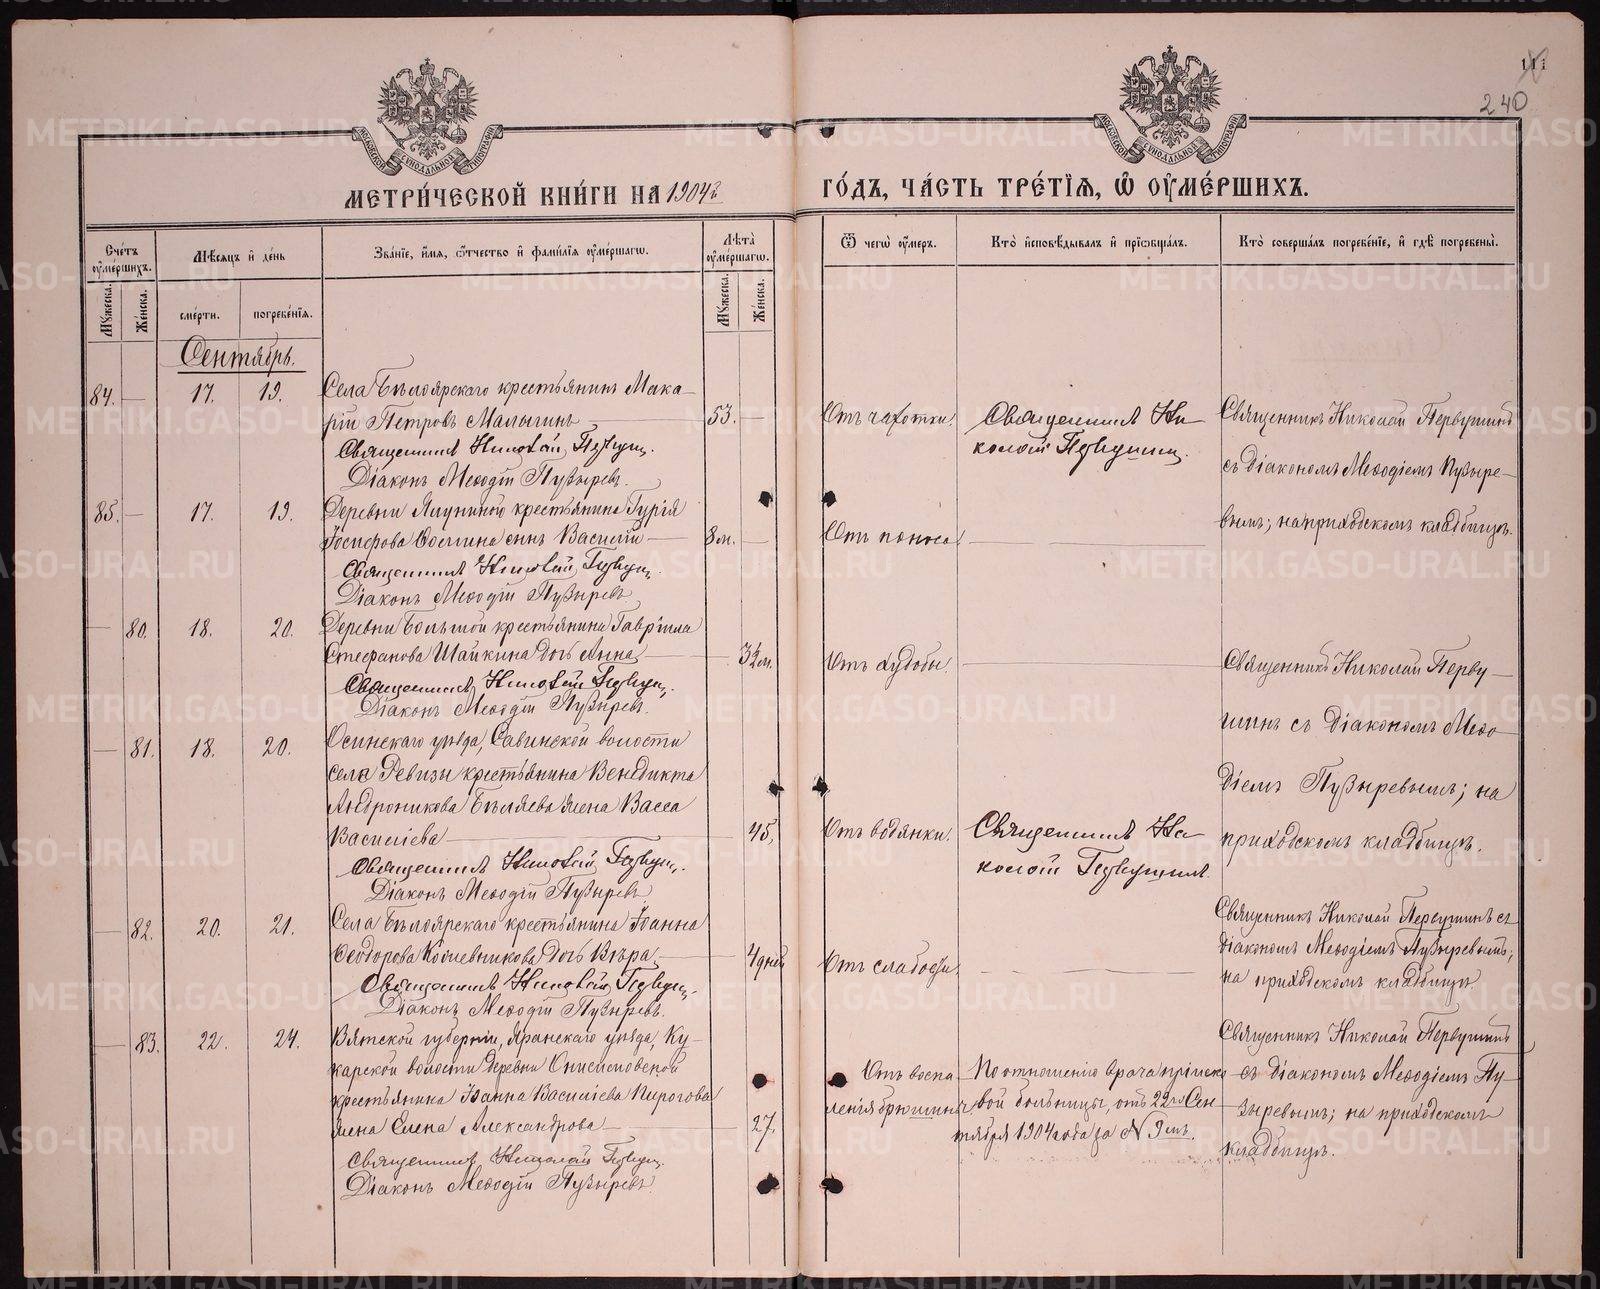 111
240
МЕТРИ́ЧЕСКОЙ КНИ́ГИ НА 1904 г
ГО́ДЪ, ЧА́СТЬ ТРЕ́ТІѦ, Ѿ ОУМЕ́РШИХЪ.
Счетъ оумершихъ.
Мужеска.
Женска.
Мѣсяцъ и день
смерти.
погребенія.
Званіе, имя, отчество и фамилія оумершагѡ.
Лѣта оумершагѡ.
Мужеска.
Женска.
Ѿ чегѡ оумеръ.
Кто исповѣдывалъ и пріобщалъ.
Кто совершалъ погребеніе, и гдѣ погребены.
Сентябрь.
84. — 17. 19.
Села Бѣлоярскаго крестьянинъ Мака-
рій Петровъ Малыгинъ — 53. —
Священникъ Николай Первушинъ.
Діаконъ Меѳодій Пузыревъ.
Отъ чахотки.
Священникъ Ни-
колай Первушинъ.
Священникъ Николай Первушинъ
съ діакономъ Меѳодіемъ Пузыре-
вымъ; на приходскомъ кладбищѣ.
85. — 17. 19.
Деревни крестьянина Гурія
Іосифова сынъ Василій — 8 м. —
Священникъ Николай Первуш.
Діаконъ Меѳодій Пузыревъ
Отъ поноса. —
— 80. 18. 20.
Деревни Большой крестьянина Гавріила
Стефанова Шайкина дочь Анна —
Священникъ Николай Первуш.
Діаконъ Меѳодій Пузыревъ.
Отъ худобы. —
Священникъ Николай Перву-
шинъ съ діакономъ Меѳо-
діемъ Пузыревымъ; на
приходскомъ кладбищѣ.
— 81. 18. 20.
Осинскаго уѣзда, Савинской волости
села Ревизы крестьянина Венедикта
Андроникова Бѣляева жена Васса
Васильева — 45.
Священникъ Николай Первуш.
Діаконъ Меѳодій Пузыревъ
Отъ водянки.
Священникъ Ни-
колай Первушинъ.
— 82. 20. 21.
Села Бѣлоярскаго крестьянина Іоанна
Ѳеодорова Кожевникова дочь Вѣра — 4 дней
Священникъ Николай Первуш.
Діаконъ Меѳодій Пузыревъ.
Отъ слабости. —
Священникъ Николай Первушинъ съ
діакономъ Меѳодіемъ Пузыревымъ;
на приходскомъ кладбищѣ.
— 83. 22. 24.
Вятской губерніи, Яранскаго уѣзда, Ку-
карской волости деревни
крестьянина Іоанна Васильева Пирогова
жена Елена Александрова — 27.
Священникъ Николай Первуш.
Діаконъ Меѳодій Пузыревъ.
Отъ воспа-
ленія брюшины
По отношенію врача пріиско-
вой больницы, отъ 22го Сен-
тября 1904 года за № 9мъ.
Священникъ Николай Первушинъ
съ діакономъ Меѳодіемъ Пу-
зыревымъ; на приходскомъ
кладбищѣ.
METRIKI.GASO-URAL.RU